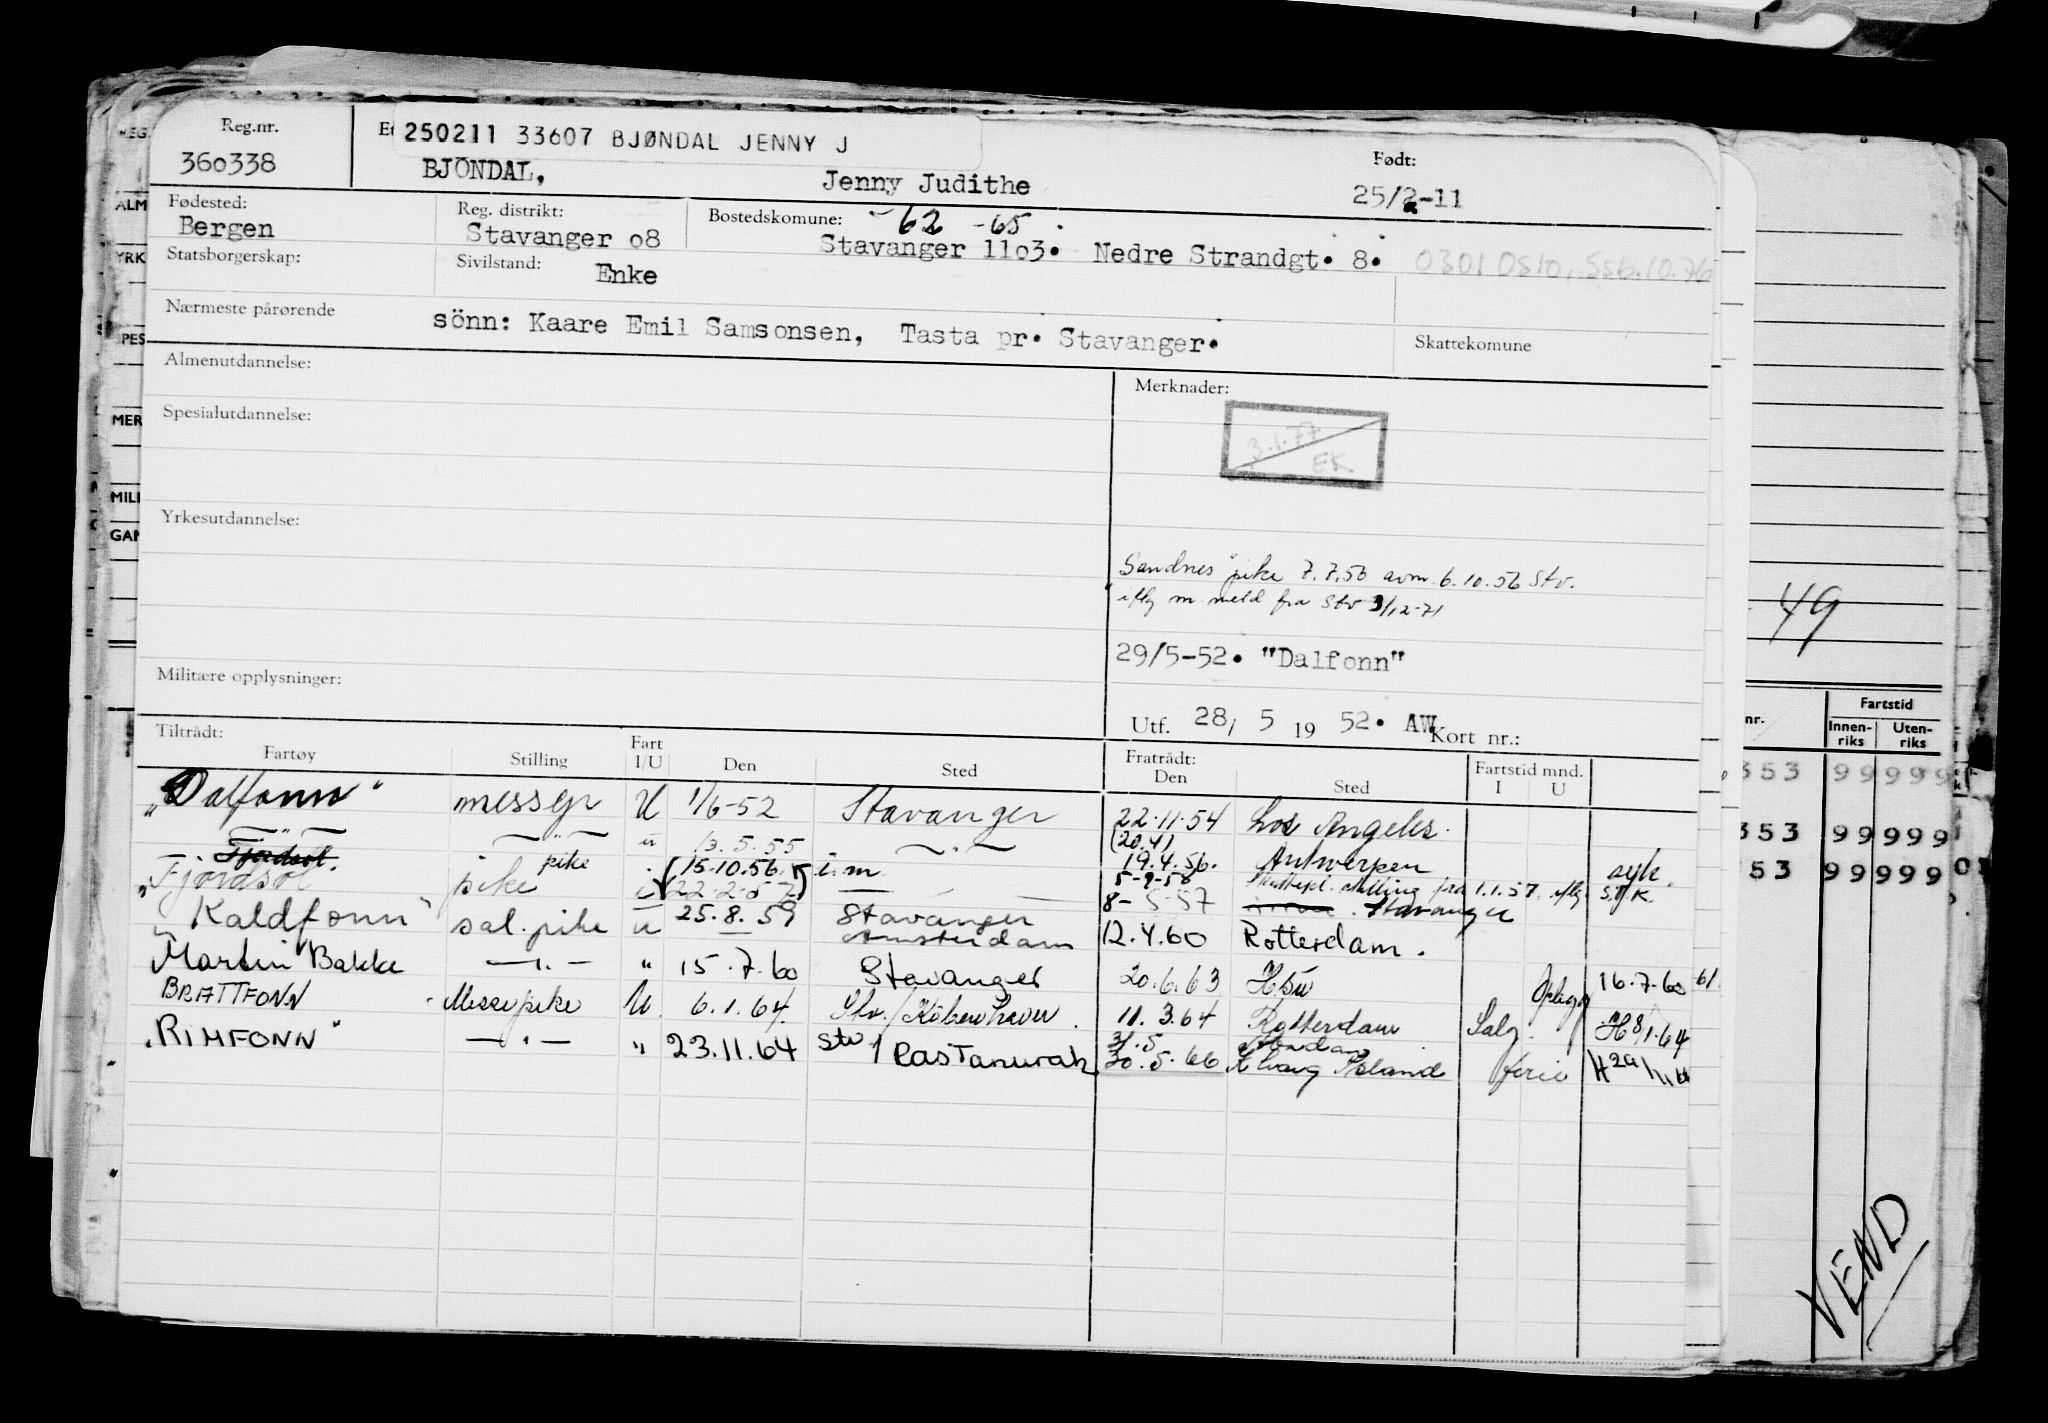 Reg.nr.
360338
250211 33607 BJØNDAL JENNY J
BJÖNDAL, Jenny Judithe
Født:
25/2-11
Fødested:
Bergen
Reg. distrikt:
Stavanger o8
Bostedskomune: -62 -65
Stavanger 11o3. Nedre Strandgt. 8.
0301 Oslo, SSB.10.76
Statsborgerskap:
Sivilstand:
Enke
Nærmeste pårørende
sönn: Kaare Emil Samsonsen, Tasta pr. Stavanger.
Skattekomune
Almenutdannelse:
Merknader:
3.1.77
EK
Spesialutdannelse:
Yrkesutdannelse:
"Sandnes" pike 7.7.56 avm. 6.10.56 Stv.
iflg m meld fra Stv 3/12-71
29/5-52. "Dalfonn"
Militære opplysninger:
Utf. 28/ 5 19 52. AW
Kort nr.:
Tiltrådt:
Fartøy Stilling Fart I/U Den Sted
Fratrådt:
Den Sted Fartstid mnd. I U
"Dalfonn" messegp U 1/6-52 Stavanger 22.11.54 Los Angeles.
— " — — " — u 13.5.55 — " — (20.4) 19.4.56. Antwerpen syk.
Fjordsol pike (15.10.56 i.m 5-9-58
"Fjordsol pike 22.2.57) 8-5-57 Stavanger
"Kaldfonn" sal.pike u 25.8.59 Stavanger Amsterdam 12.4.60 Rotterdam.
Martin Bakke — " — " 15.7.60 Stavanger 20.6.63 Oplagg 16.7.60 61
BRATTFONN Messepike U 6.1.64 Stv./København 11.3.64 Rotterdam Salg. H8/1.64
"RIMFONN" — " — " 23.11.64 Stv/ Rastanurah 31.5 30.5.66 ferie
49
nr.
Fartstid
Innen-
riks
Uten-
riks
353 99 999
353 99 999
53 99 999
VEND
REG.
ALM
YRK
SPES
MER
MILI
GAN